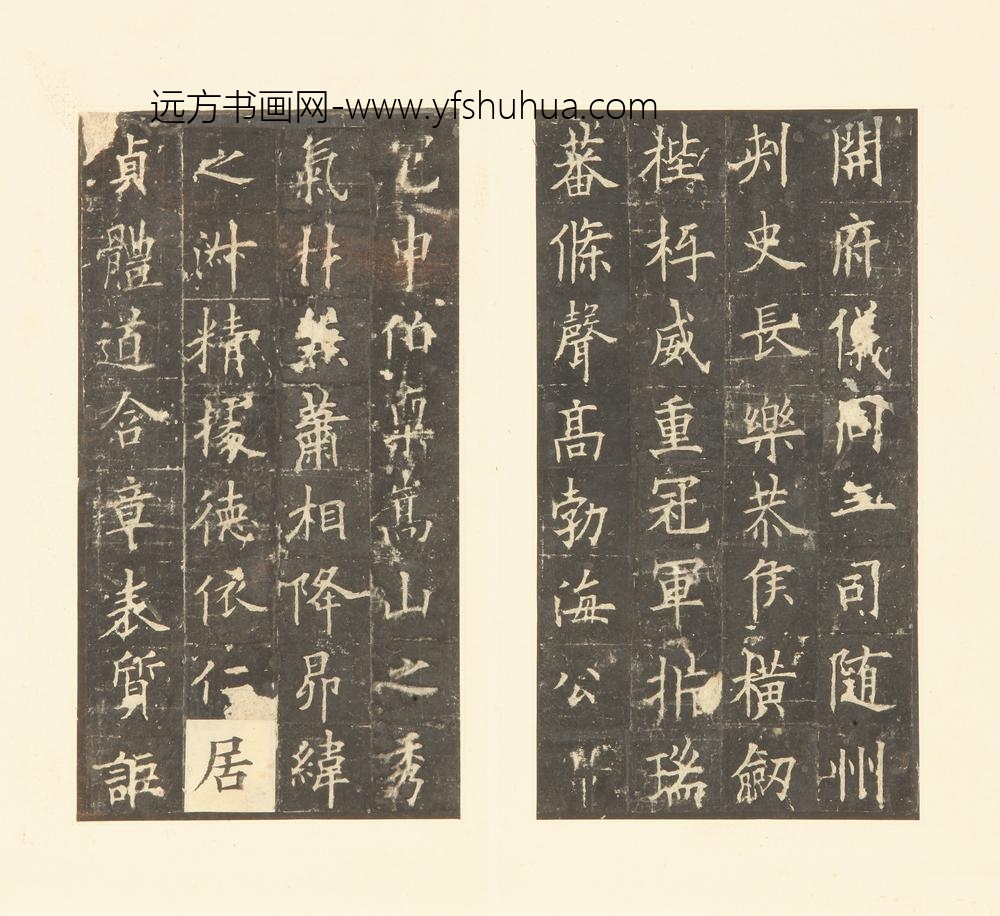 远方书画网-www.yfshuhua.com
開府儀同三司随州
刾史長樂恭侯橫劒
梐枑威重冠軍析瑞
蕃條聲髙勃海公
申伯禀嵩山之秀
氣材兼蕭相降昴緯
之淋精據德依仁居
貞體道含章表質詎